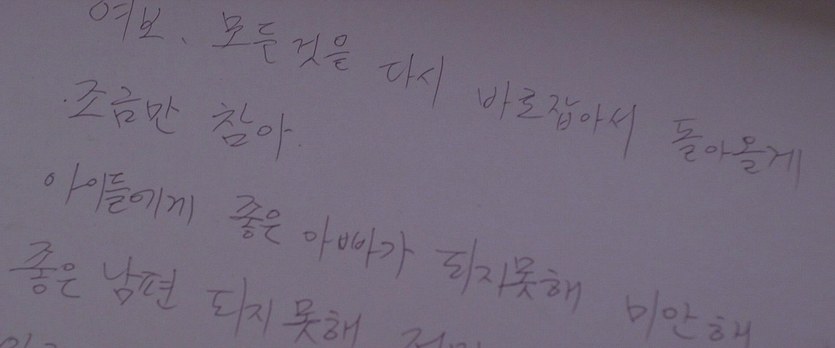 여보. 모든것을 다시 바로잡아서 돌아올게
조금만 참아.
아이들에게 좋은 아빠가 되지못해 미안해
좋은 남편 되지 못해